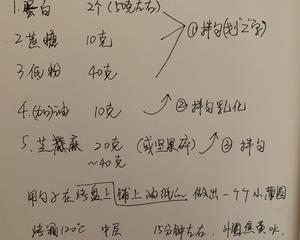 1.蛋白 2个(50克左右)
2.蔗糖 10克 ①拌匀(划"之"字)
3.低粉 40克
4.(奶)油 10克 ②拌匀乳化
5.芝麻 20克(或坚果碎) ③拌匀
~40克
用勺子在烤盘上铺上油纸 做出一个个小薄圆
烤箱120℃ 中层 15分钟左右.